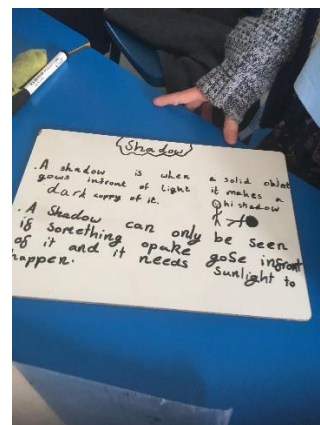 Shadow
. A shadow is when a solid objet
gows infront of light it makes a
dark coppy of it. hi shadow
. A Shadow can only be seen
if something opake goSe infront
of it and it needs sunlight to
happen.